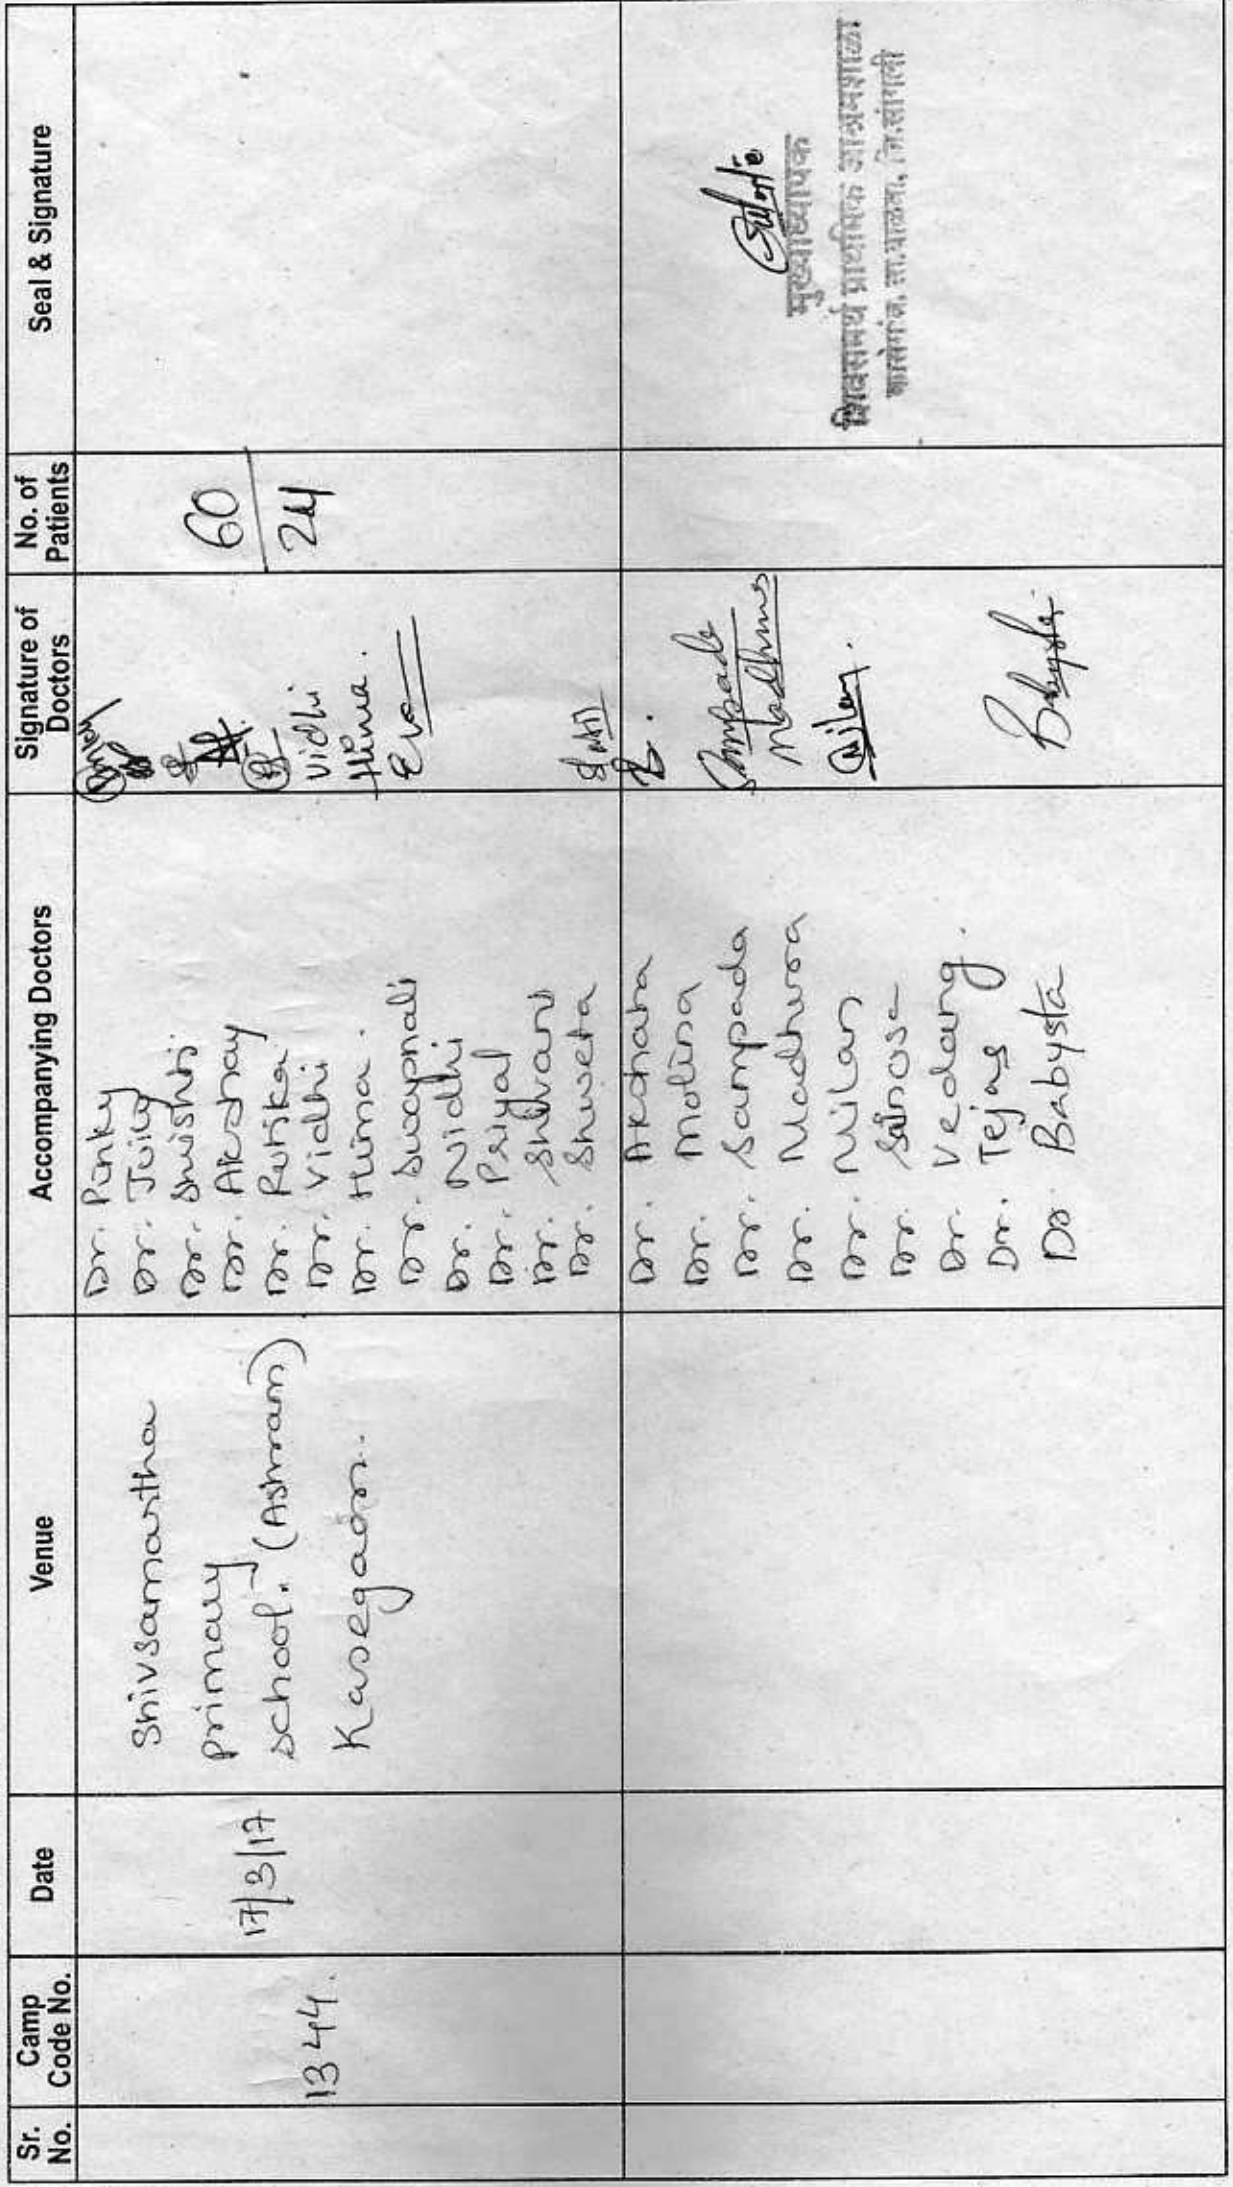 Sr. No.
Camp Code No.
Date
Venue
Accompanying Doctors
Signature of Doctors
No. of Patients
Seal & Signature
1344.
17/3/17
Shivsamartha
primary
school. (Ashram)
Kasegaon.
Dr. Pinky
Dr. Juily
Dr. Shishti
Dr. Akshay
Dr. Rutika
Dr. Vidhi
Dr. Hima.
Dr. Swapnali
Dr. Nidhi
Dr. Priyal
Dr. Shivani
Dr. Shweta
Vidhi
Hima.
60
24
Dr. Akshara
Dr. Molina
Dr. Sampada
Dr. Madhura
Dr. Milan
Dr. Sainose
Dr. Vedang.
Dr. Tejas
Dr. Babysta
Sampada
Madhura
Milan.
मुख्याध्यापक
शिवसमर्थ प्राथमिक आश्रमशाळा
कासेगांव, ता.वाळवा, जि.सांगली